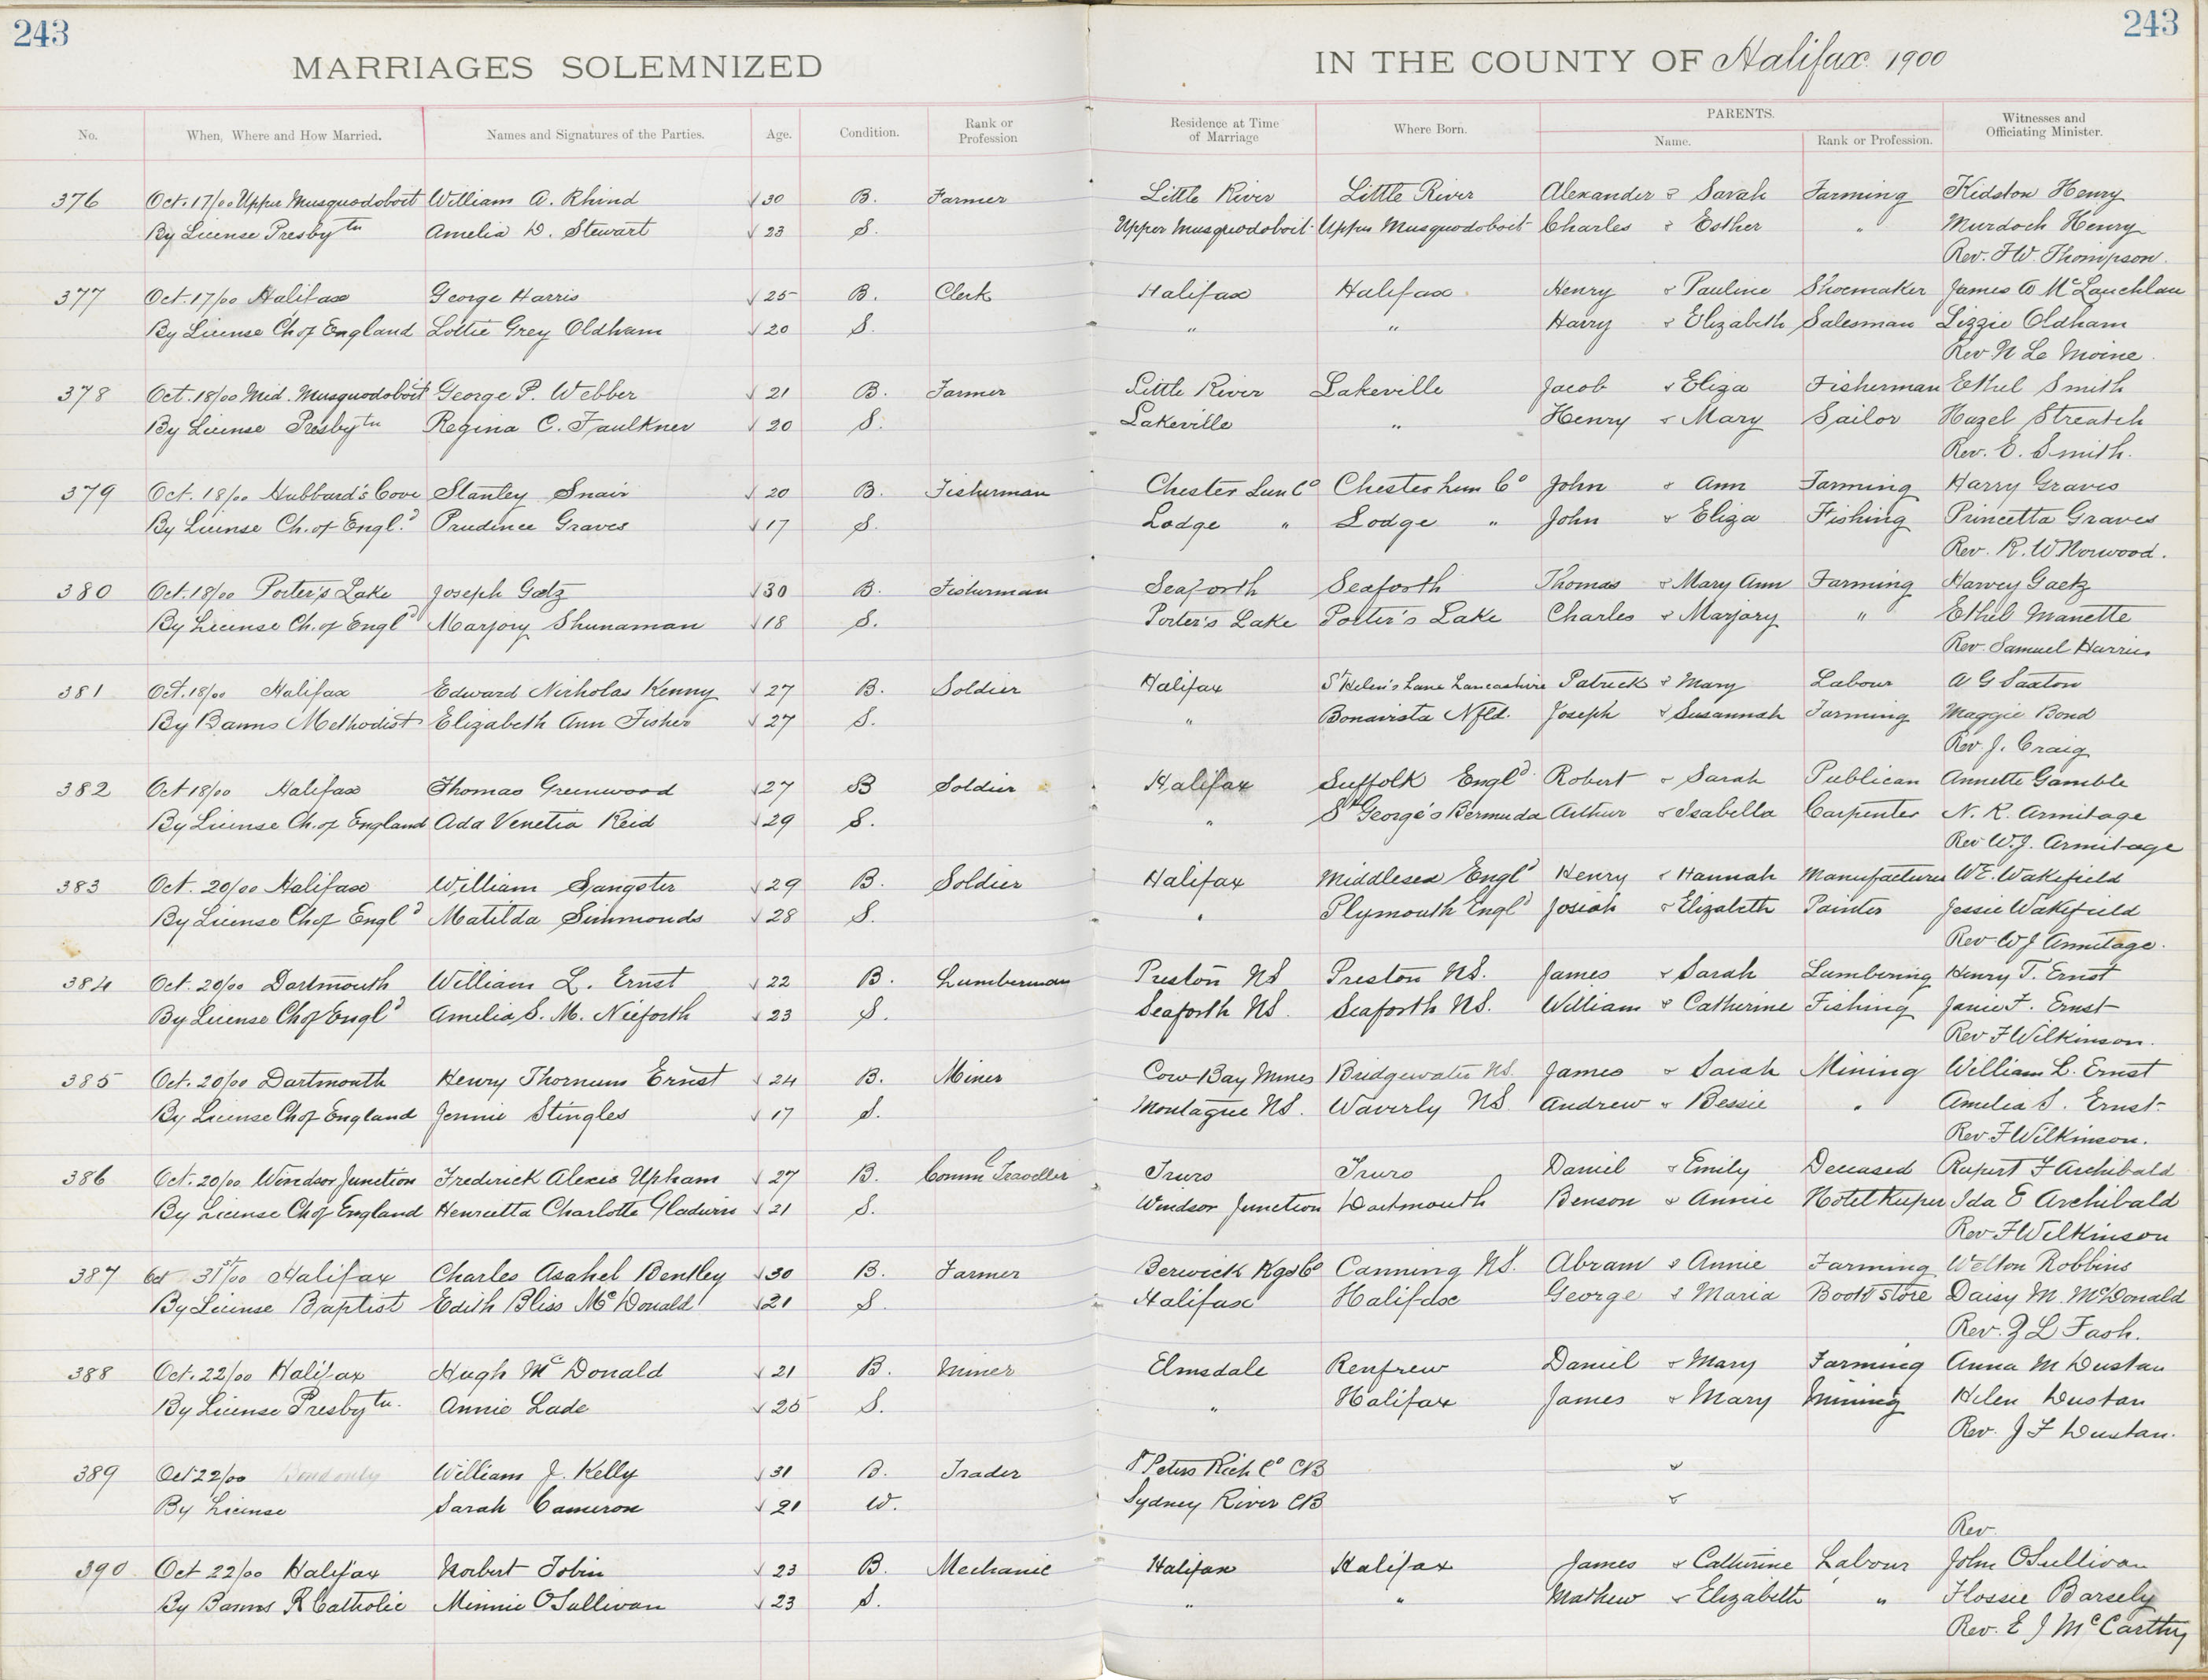 243
243
MARRIAGES SOLEMNIZED IN THE COUNTY OF Halifax. 1900
No. When, Where and How Married. Names and Signatures of the Parties. Age. Condition. Rank or Profession Residence at Time of Marriage Where Born. PARENTS. Name. Rank or Profession. Witnesses and Officiating Minister.
376 Oct. 17/00 Upper Musquodoboit William A. Rhind √ 30 B. Farmer Little River Little River Alexander & Sarah Farming Kidston Henry
By License Presbytn Amelia D. Stewart √ 23 S. Upper Musquodoboit Upper Musquodoboit Charles & Esther " Murdoch Henry
Rev. F.W. Thompson.
377 Oct. 17/00 Halifax George Harris √ 25 B. Clerk Halifax Halifax Henry & Pauline Shoemaker James A McLauchlan
By License Ch of England Lottie Grey Oldham √ 20 S. " " Harry & Elizabeth Salesman Lizzie Oldham
Rev N Le Moine.
378 Oct. 18/00 Mid. Musquodoboit George P. Webber √ 21 B. Farmer Little River Lakeville Jacob & Eliza Fisherman Ethel Smith
By License Presbytn Regina C. Faulkner √ 20 S. Lakeville " Henry & Mary Sailor Hazel Streatch
Rev. E. Smith.
379 Oct. 18/00 Hubbard's Cove Stanley Snair √ 20 B. Fisherman Chester Lun Co Chester Lun Co John & Ann Farming Harry Graves
By License Ch. of Engl.d Prudence Graves √ 17 S. Lodge " Lodge " John & Eliza Fishing Princetta Graves
Rev. R. W Norwood.
380 Oct. 18/00 Porter's Lake Joseph Gaetz √ 30 B. Fisherman Seaforth Seaforth Thomas & Mary Ann Farming Harvey Gaetz
By License Ch. of Engld Marjory Shunaman √ 18 S. Porter's Lake Porter's Lake Charles & Marjory " Ethel Manette
Rev. Samuel Harris
381 Oct. 18/00 Halifax Edward Nicholas Kenny √ 27 B. Soldier Halifax St Helen's Lane Lancashire Patrick & Mary Labour A G Saxton
By Banns Methodist Elizabeth Ann Fisher √ 27 S. " Bonavista Nfld. Joseph & Susannah Farming Maggie Bond
Rev. J. Craig
382 Oct 18/00 Halifax Thomas Greenwood √ 27 B Soldier Halifax Suffolk Engld. Robert & Sarah Publican Annette Gamble
By License Ch. of England Ada Venetia Reid √ 29 S. " St George's Bermuda Arthur & Isabella Carpenter N. R. Armitage
Rev W.J. Armitage
383 Oct. 20/00 Halifax William Sangster √ 29 B. Soldier Halifax Middlesex Engld Henry & Hannah Manufacturer W E. Wakefield
By License Ch of Engld Matilda Simmonds √ 28 S. " Plymouth Engld Josiah & Elizabeth Painter Jessie Wakefield
Rev W J Armitage.
384 Oct. 20/00 Dartmouth William L. Ernst √ 22 B. Lumberman Preston NS Preston NS. James & Sarah Lumbering Henry T. Ernst
By License Ch of Engld Amelia S. M. Nieforth √ 23 S. Seaforth NS. Seaforth NS. William & Catherine Fishing Janie F. Ernst
Rev F Wilkinson.
385 Oct. 20/00 Dartmouth Henry Thornum Ernst √ 24 B. Miner Cow Bay Mines Bridgewater NS. James & Sarah Mining William L. Ernst
By License Ch of England Jennie Stingles √ 17 S. Montague NS. Waverly NS Andrew & Bessie " Amelia S. Ernst
Rev F Wilkinson.
386 Oct. 20/00 Windsor Junction Frederick Alexis Upham √ 27 B. Comml Traveller Truro Truro Daniel & Emily Deceased Rupert F Archibald
By License Ch of England Henrietta Charlotte Gladwin √ 21 S. Windsor Junction Dartmouth Benson & Annie Hotel Keeper Ida E Archibald
Rev F Wilkinson
387 Oct 31st/00 Halifax Charles Asahel Bentley √ 30 B. Farmer Berwick Kgs Co Canning NS. Abram & Annie Farming Welton Robbins
By License Baptist Edith Bliss McDonald √ 21 S. Halifax Halifax George & Maria Book Store Daisy M. McDonald
Rev. Z L Fash.
388 Oct. 22/00 Halifax Hugh McDonald √ 21 B. Miner Elmsdale Renfrew Daniel & Mary Farming Anna M Dustan
By License Presbytn. Annie Lade √ 25 S. " Halifax James & Mary Mining Helen Dustan
Rev. J F Dustan.
389 Oct 22/00 Bond only William J. Kelly √ 31 B. Trader St Peters Rich Co CB &
By License Sarah Cameron √ 21 W. Sydney River CB &
Rev.
390 Oct 22/00 Halifax Norbert Tobin √ 23 B. Mechanic Halifax Halifax James & Catherine Labour John OSullivan
By Banns R Catholic Minnie OSullivan √ 23 S. " " Mathew & Elizabeth " Flossie Barsely
Rev. E J McCarthy